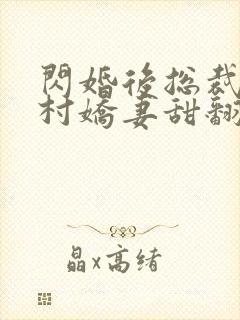 閃婚後総裁
村嬌妻甜翻
晶x高绪